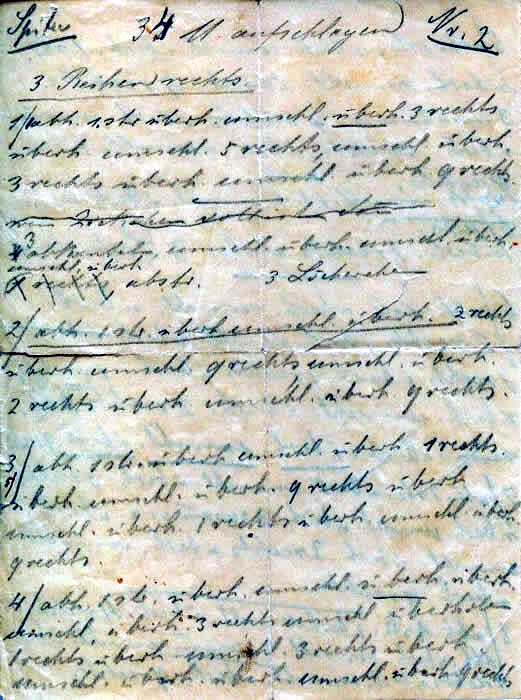 Spitze 34 M. aufschlagen Nr. 2
3 Reihen rechts
1/ abh. 1 str. überh. umschl. überh. 3 rechts
überh. umschl. 5 rechts, umschl. überh.
3 rechts überh. umschl überh. 9 rechts.
3 umschl. überh. umschl. überh.
umschl. überh.
rechts, abstr. 3 Löcherchen
2/ abh. 1 str. überh umschl. überh. 2 rechts
überh. umschl. 9 rechts umschl. überh.
2 rechts überh. umschl. überh. 9 rechts.
3/ abh. 1 str. überh umschl. überh. 1 rechts.
überh. umschl. überh. 9 rechts überh
umschl. überh. 1 rechts überh. umschl überh.
9 rechts.
4/ abh. 1 str. überh. umschl. überh. überh.
umschl. überh. 3 rechts umschl überholen
1 rechts überh umschl. 3 rechts überh.
umschl. überh. überh. umschl. überh 9 rechts